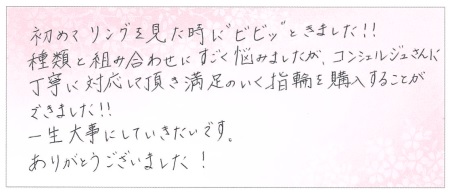 初めてリングを見た時に〝ビビッ〟ときました!!
種類と組み合わせにすごく悩みましたが、コンシェルジュさんに
丁寧に対応して頂き満足のいく指輪を購入することが
できました!!
一生大事にしていきたいです。
ありがとうございました!